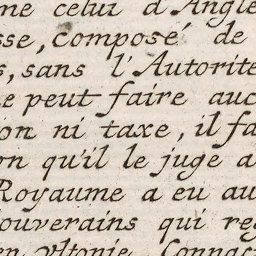 me celui d'Angle
sse, composé de
s, sans l'Autorité
ne peut faire auc
ion ni taxe, il fa
on qu'il le juge a
Royaume a eu au
ouverains qui reg
en Vltonie, Connac